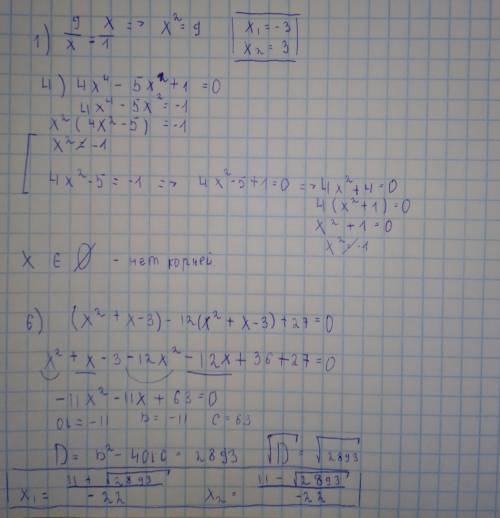 1) 9/x = x/1 => x² = 9
x₁ = -3
x₂ = 3
4) 4x⁴ - 5x² + 1 = 0
4x⁴ - 5x² = -1
x²(4x² - 5) = -1
x² ≠ -1
4x² - 5 = -1 => 4x² - 5 + 1 = 0 => 4x² + 4 = 0
4(x² + 1) = 0
x² + 1 = 0
x² ≠ -1
X ∈ ∅ - нет корней
6) (x² + x - 3) - 12(x² + x - 3) + 27 = 0
x² + x - 3 - 12x² - 12x + 36 + 27 = 0
-11x² - 11x + 63 = 0
a = -11 b = -11 c = 63
D = b² - 4ac = 2893 √D = √2893
x₁ = (11 + √2893)/(-22) x₂ = (11 - √2893)/(-22)